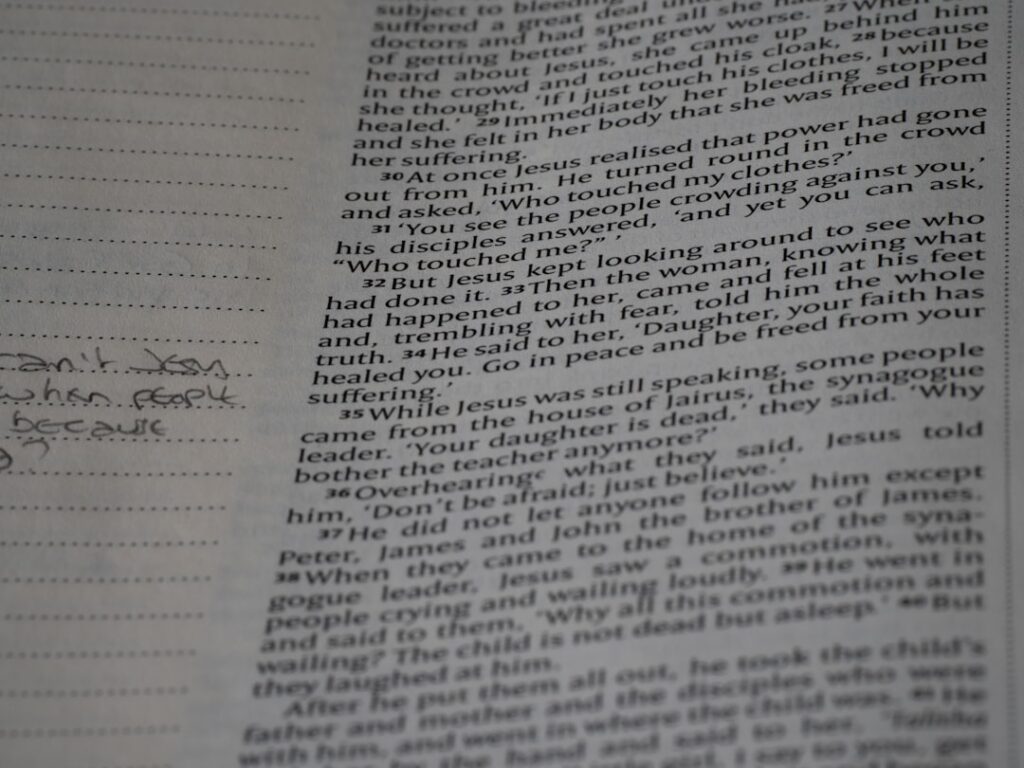 can't Jesus
when people
because
?
subject to bleeding
suffered a great deal
doctors and had spent all she had,
of getting better she grew worse. 27 When
heard about Jesus, she came up behind him
in the crowd and touched his cloak, 28 because
she thought, 'If I just touch his clothes, I will be
healed.' 29 Immediately her bleeding stopped
and she felt in her body that she was freed from
her suffering.
30 At once Jesus realised that power had gone
out from him. He turned round in the crowd
and asked, 'Who touched my clothes?'
31 'You see the people crowding against you,'
his disciples answered, 'and yet you can ask,
"Who touched me?" '
32 But Jesus kept looking around to see who
had done it. 33 Then the woman, knowing what
had happened to her, came and fell at his feet
and, trembling with fear, told him the whole
truth. 34 He said to her, 'Daughter, your faith has
healed you. Go in peace and be freed from your
suffering.'
35 While Jesus was still speaking, some people
came from the house of Jairus, the synagogue
leader. 'Your daughter is dead,' they said. 'Why
bother the teacher anymore?'
36 Overhearing what they said, Jesus told
him, 'Don't be afraid; just believe.'
37 He did not let anyone follow him except
Peter, James and John the brother of James.
38 When they came to the home of the syna-
gogue leader, Jesus saw a commotion, with
people crying and wailing loudly. 39 He went in
and said to them, 'Why all this commotion and
wailing? The child is not dead but asleep.' 40 But
they laughed at him.
After he put them all out, he took the child's
father and mother and the disciples who were
with him, and went in where the child was. 41 He
by the hand and said to her, 'Talitha
girl, I say to you, get